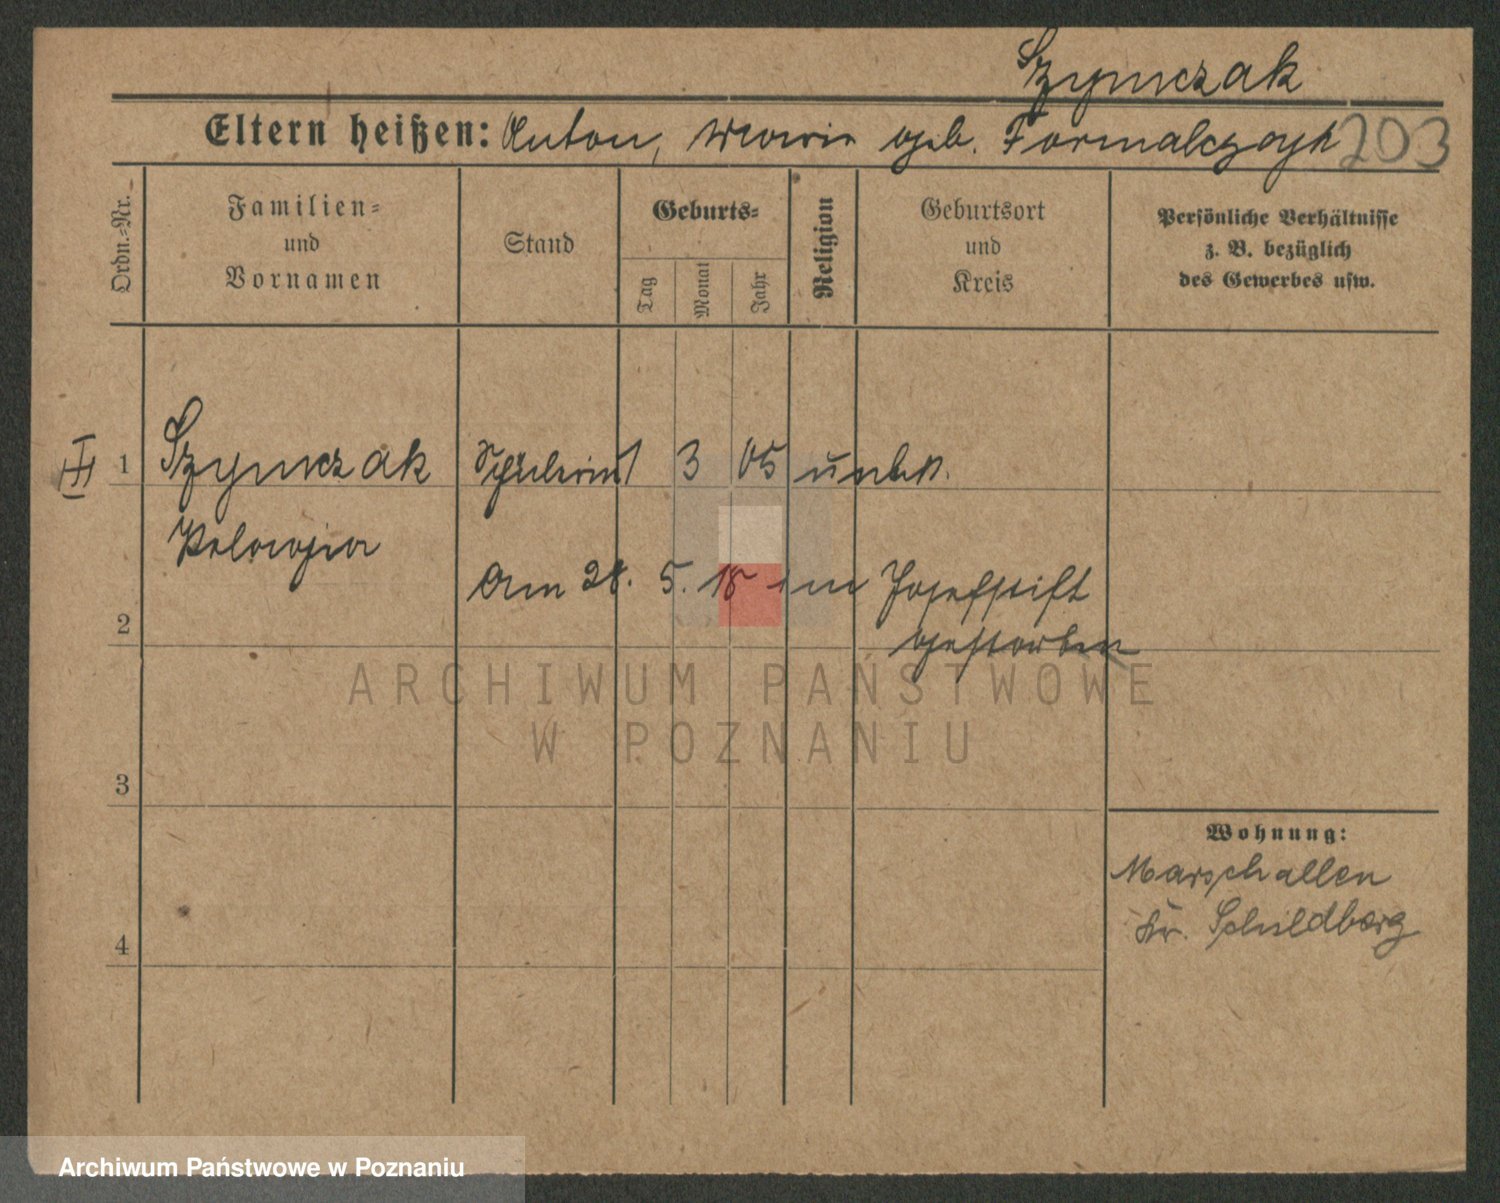 Szymczak
Eltern heißen: Anton, Marie geb. Formalczyk 203
Ordn.-Nr.
Familien-
und
Vornamen
Stand
Geburts-
Tag
Monat
Jahr
Religion
Geburtsort
und
Kreis
Persönliche Verhältnisse
z. B. bezüglich
des Gewerbes usw.
III 1 Szymczak Schülerin 1 3 05 unbek.
Pelagia
Am 28. 5. 18 im Josefstift
2 gestorben
ARCHIWUM PAŃSTWOWE
W POZNANIU
3
Wohnung:
Marschallen
Kr. Schildberg
4
Archiwum Państwowe w Poznaniu